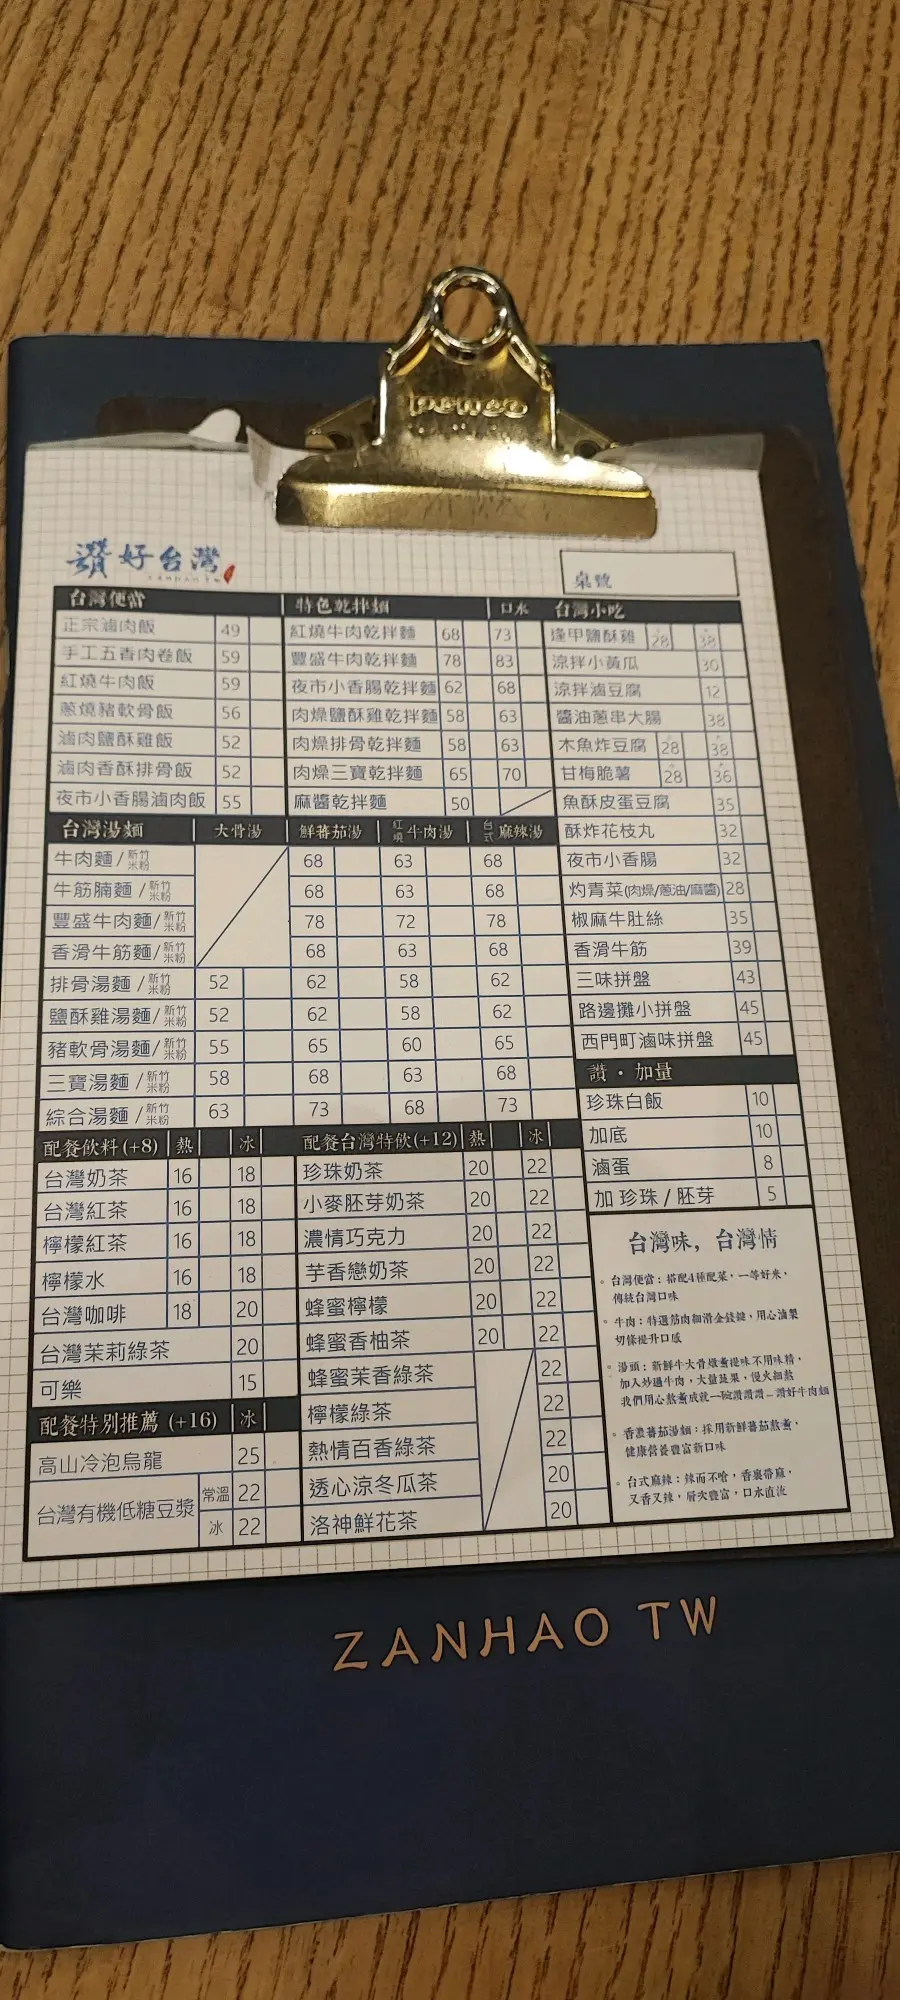 讚好台灣
ZANHAO TW
桌號
台灣便當
正宗滷肉飯 49
手工五香肉卷飯 59
紅燒牛肉飯 59
蔥燒豬軟骨飯 56
滷肉鹽酥雞飯 52
滷肉香酥排骨飯 52
夜市小香腸滷肉飯 55
特色乾拌麵 口水
紅燒牛肉乾拌麵 68 73
豐盛牛肉乾拌麵 78 83
夜市小香腸乾拌麵 62 68
肉燥鹽酥雞乾拌麵 58 63
肉燥排骨乾拌麵 58 63
肉燥三寶乾拌麵 65 70
麻醬乾拌麵 50
台灣小吃
逢甲鹽酥雞 28 38
涼拌小黃瓜 30
涼拌滷豆腐 12
醬油蔥串大腸 38
木魚炸豆腐 28 38
甘梅脆薯 28 36
魚酥皮蛋豆腐 35
酥炸花枝丸 32
夜市小香腸 32
灼青菜(肉燥/蔥油/麻醬) 28
椒麻牛肚絲 35
香滑牛筋 39
三味拼盤 43
路邊攤小拼盤 45
西門町滷味拼盤 45
台灣湯麵 大骨湯 鮮蕃茄湯 紅燒牛肉湯 台式麻辣湯
牛肉麵/新竹米粉 68 63 68
牛筋腩麵/新竹米粉 68 63 68
豐盛牛肉麵/新竹米粉 78 72 78
香滑牛筋麵/新竹米粉 68 63 68
排骨湯麵/新竹米粉 52 62 58 62
鹽酥雞湯麵/新竹米粉 52 62 58 62
豬軟骨湯麵/新竹米粉 55 65 60 65
三寶湯麵/新竹米粉 58 68 63 68
綜合湯麵/新竹米粉 63 73 68 73
讚・加量
珍珠白飯 10
加底 10
滷蛋 8
加 珍珠/胚芽 5
配餐飲料(+8) 熱 冰
台灣奶茶 16 18
台灣紅茶 16 18
檸檬紅茶 16 18
檸檬水 16 18
台灣咖啡 18 20
台灣茉莉綠茶 20
可樂 15
配餐特別推薦 (+16) 冰
高山冷泡烏龍 25
台灣有機低糖豆漿 常溫 22
冰 22
配餐台灣特飲(+12) 熱 冰
珍珠奶茶 20 22
小麥胚芽奶茶 20 22
濃情巧克力 20 22
芋香戀奶茶 20 22
蜂蜜檸檬 20 22
蜂蜜香柚茶 20 22
蜂蜜茉香綠茶 22
檸檬綠茶 22
熱情百香綠茶 22
透心涼冬瓜茶 20
洛神鮮花茶 20
台灣味，台灣情
。台灣便當：搭配4種配菜，一等好米，
傳統台灣口味
。牛肉：特選筋肉細滑金錢腱，用心滷製
切條提升口感
。湯頭：新鮮牛大骨燉煮提味不用味精，
加入炒過牛肉，大量蔬果，慢火細熬
我們用心熬煮成就一碗讚讚讚－讚好牛肉麵
。香濃蕃茄湯麵：採用新鮮蕃茄熬煮，
健康營養豐富新口味
。台式麻辣：辣而不嗆，香裹帶麻，
又香又辣，層次豐富，口水直流
ZANHAO TW